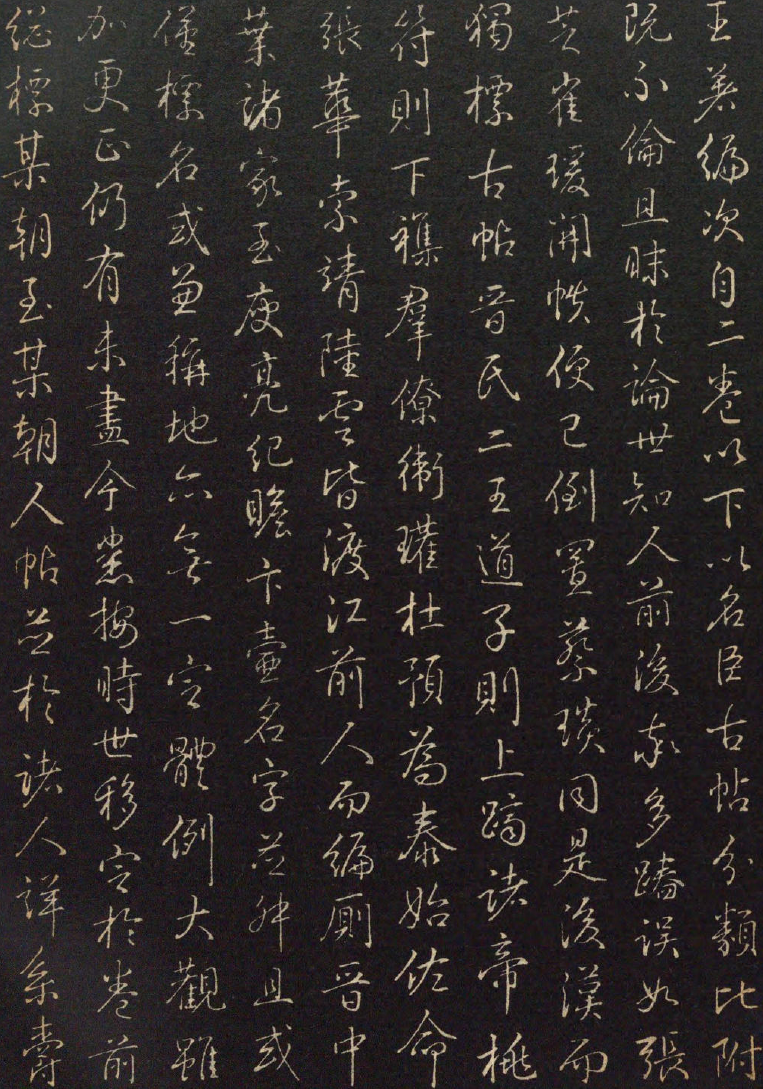 王著編次自二卷以下以名臣古帖分類比附
既不倫且昧於論世知人前後亦多踳誤如張
芝崔瑗開帙便已倒置蔡琰同是後漢而
獨標古帖晉氏二王道子則上躋諸帝桃
符則下襍羣僚衛瓘杜預為泰始佐命
張華索靖陸雲皆渡江前人而編厠晉中
葉諸家至庾亮紀瞻卞壼名字並舛且或
僅標名或兼稱地亦無一定體例大觀雖
加更正仍有未盡今悉按時世移定於卷前
總標某朝至某朝人帖並於諸人詳系爵